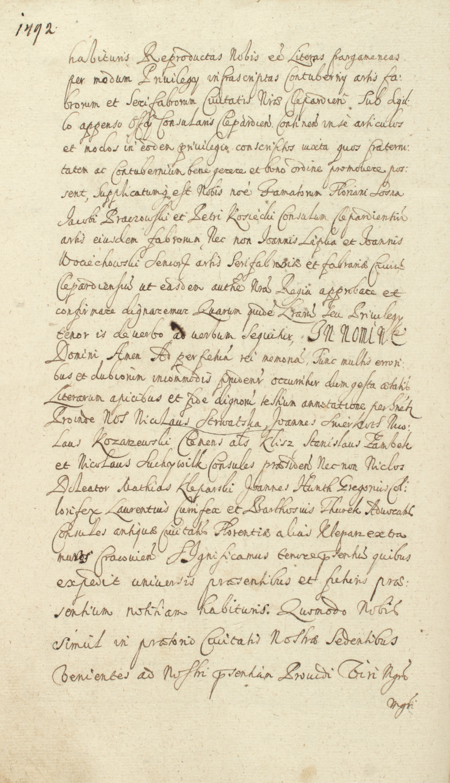 1792
habituris Reproductas Nobis eē Literas pargameneas
per modum Privilegy infrascriptas Contuberny artis fa-
brorum et Serifabrorum Civitatis Nrae Clepardien̄. Sub Sigil-
lo appenso Offy Consularis Clepardien̄ Continen̄ in se articulos
et modos in eodem privilegio conscriptos iuxta quos fraterni-
tatem ac Contubernium bene gerere et bono ordine promovere pos-
sent, Supplicatumq est Nobis noē Famatorum Floriani
Jacobi Praczowski et Petri Kosiecki Consulum Clepardientiu
artis eiusdem fabrorum, Nec non Joannis Lipka et Joannis
Wociechowski Senior artis Serifabrilis et fabrariae Civit
Clepardiensis ut easdem authe Nra Regia approbare et
confirmare dignaremur Quarum quidē Lrarum seu Privilegy
tenor is de verbo ad verbum Sequitur. IN NOMINE
Domini Amen Ad perpetuā rei memoriā Tunc multis errori-
bus et dubiorum incommodis prudenr occurritur dum gesta aetatis
Literarum apicibus et fide dignorū testium annotatione perenant
Proinde Nos Nicolaus Joannes Nico-
laus Kozarzewski Clemens als Klisz Stanislaus Zambek
et Nicolaus Suchywilk Consules praesiden̄ Nec non Niclos
Deleator Mathias Kleparski Joannes Hunth Gregorius Col-
lorifex Laurentius et Barthosius Thurek Advocatus
Consules antiquae civitatis Florentiae alias Kleparz extra
muros Cracovien Significamus tenore pntiu quibus
expedit universis praesentibus et futuris prae-
sentium notitiam habituris. Quomodo Nobis
simul in praetorio Civitatis Nostrae Sedentibus
venientes ad Nostri psentiam Providi Viri Ngri
mgri